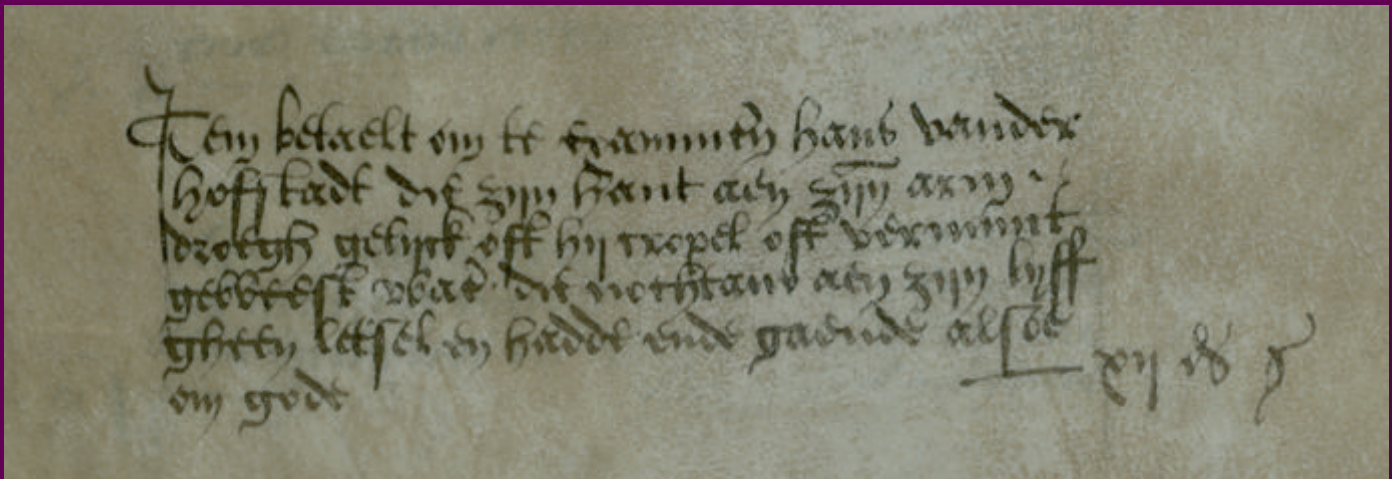 Item betaelt om te examinen hans vander
hofstadt die zijn hant aen zijn arm
droegh gelijck oft hij cropel oft verminct
geweest waer die nochtans aen zijn lyff
gheen letsel en hadde ende gaende alsoe
om gode xij